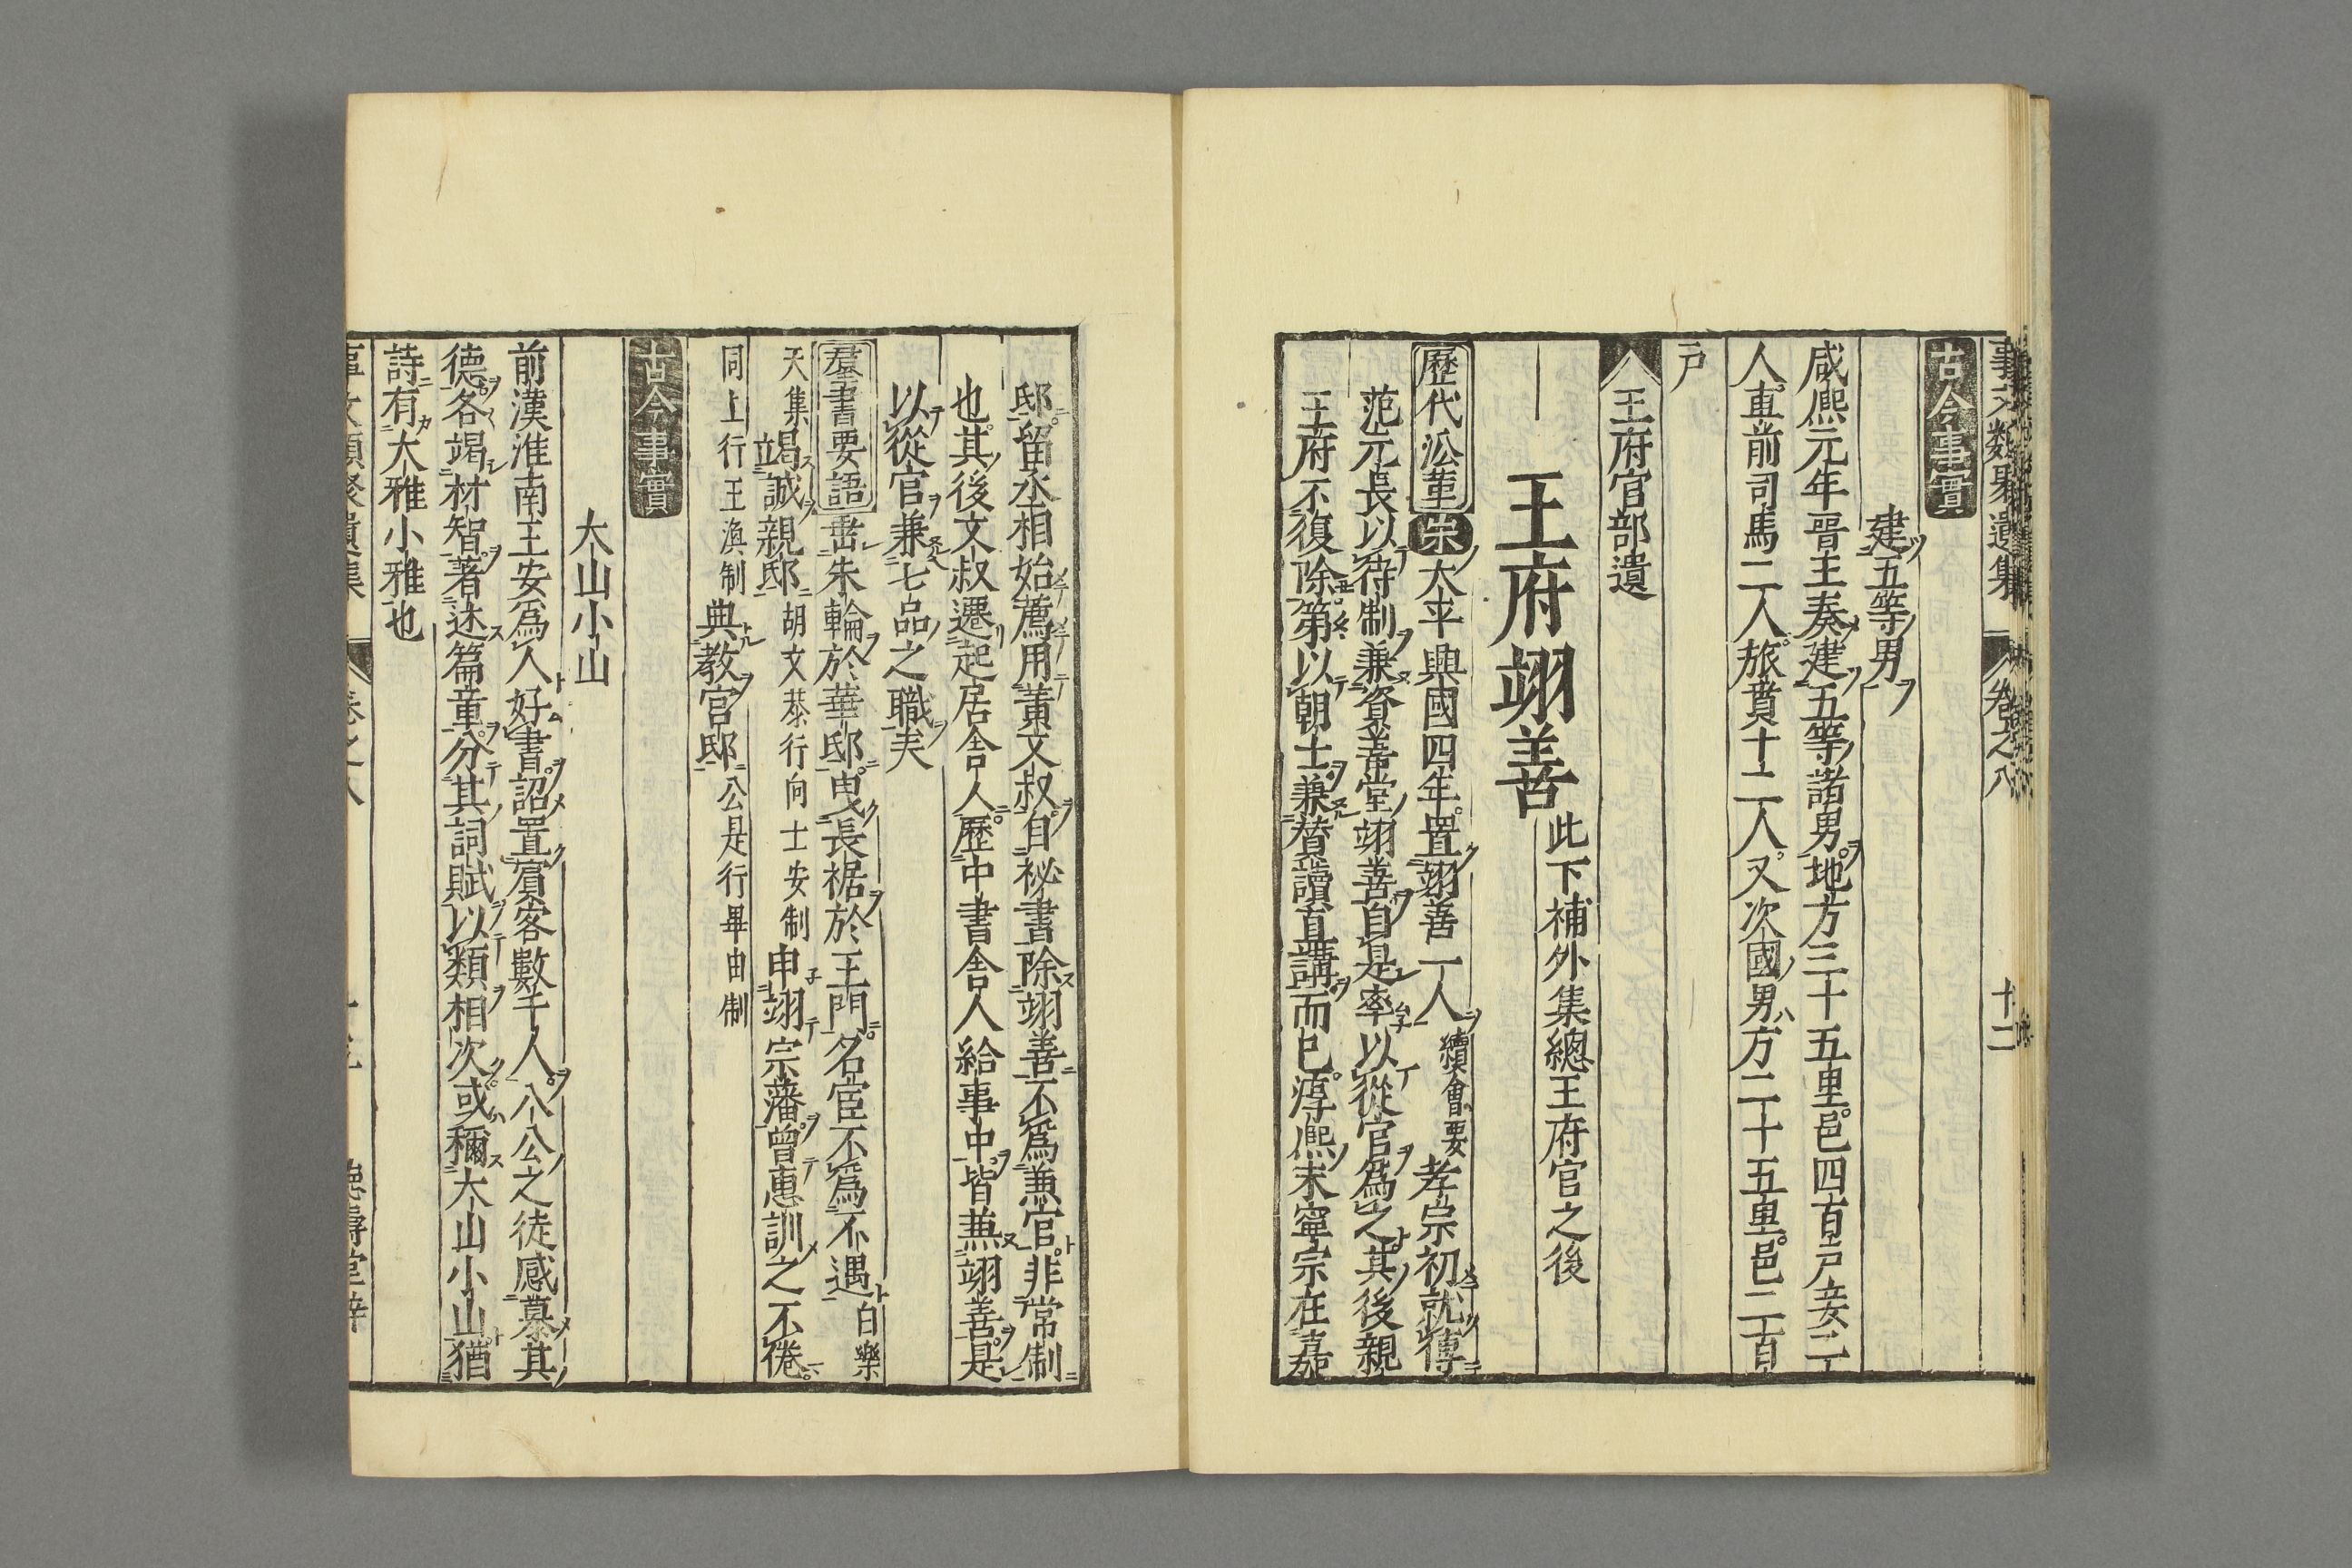 事文類聚遺集 卷之八 十二
古今事實
建五等男
咸熙元年晉王奏建五等諸男地方三十五里邑四百戶妾二
人車前司馬二人旅賁十二人又次國男方二十五里邑二百
戶
王府官部遺
王府翊善 此下補外集總王府官之後
歷代沿革 宋 太平興國四年置翊善一人 續會要 孝宗初就傅
范元長以待制兼資善堂翊善自是率以從官爲之其後親
王府不復除第以朝士兼贊讀直講而已淳熙末寧宗在嘉
邸留丞相始薦用黃文叔自祕書除翊善不爲兼官非常制
也其後文叔遷起居舍人歷中書舍人給事中皆兼翊善是
以從官兼七品之職矣
羣書要語 乗朱輪於華邸曳長裾於王門名宦不爲不遇 白樂
天集 竭誠親邸 胡文恭行向士安制 申翊宗藩曾惠訓之不倦
同上行王渙制 典教官邸 公是行畢由制
古今事實
大山小山
前漢淮南王安爲人好書詔置賓客數千人八公之徒感慕其
德各竭材智著述篇章分其詞賦以類相次或稱大山小山猶
詩有大雅小雅也
事文類聚遺集 卷之八